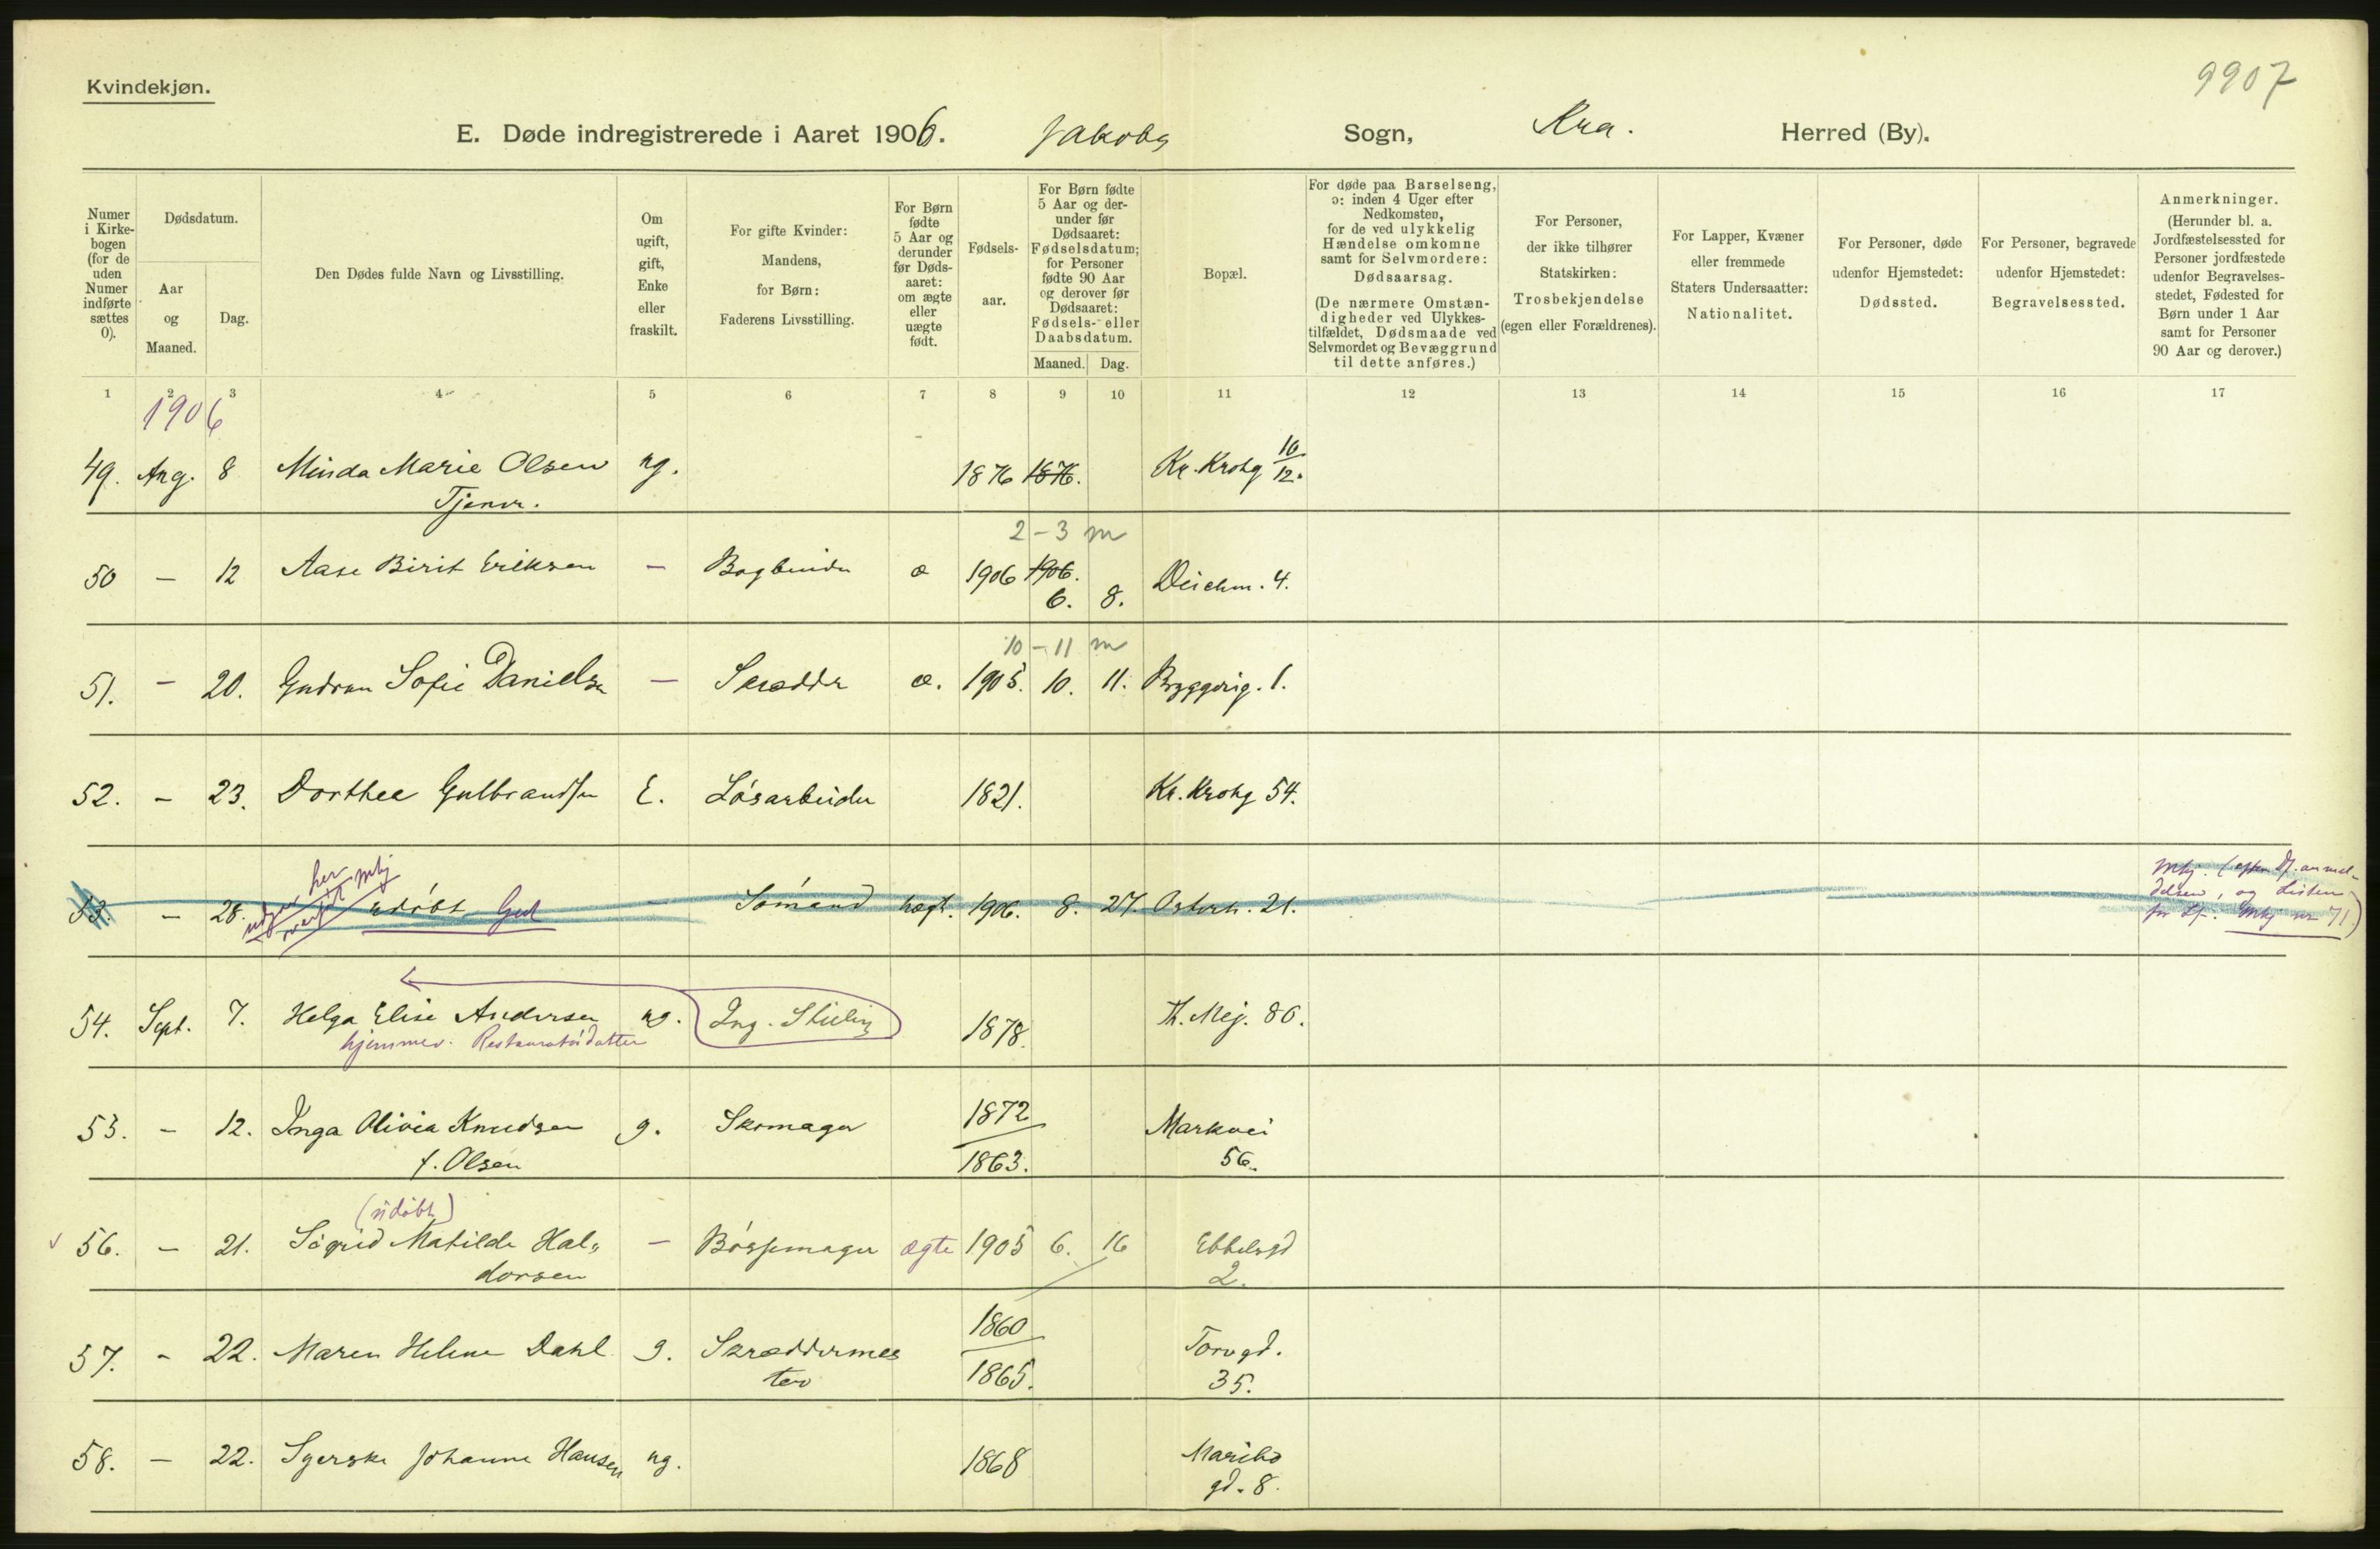 Kvindekjøn.
9907
E. Døde indregistrerede i Aaret 1906. Jakobs Sogn, Kra. Herred (By).
Numer i Kirkebogen (for de uden Numer indførte sættes 0).
Dødsdatum.
Aar og Maaned.
Dag.
Den Dødes fulde Navn og Livsstilling.
Om ugift, gift, Enke eller fraskilt.
For gifte Kvinder: Mandens, for Børn: Faderens Livsstilling.
For Børn fødte 5 Aar og derunder før Døds-aaret: om ægte eller uægte født.
Fødsels-aar.
For Børn fødte 5 Aar og derunder før Dødsaaret: Fødselsdatum; for Personer fødte 90 Aar og derover før Dødsaaret: Fødsels- eller Daabsdatum.
Maaned. Dag.
Bopæl.
For døde paa Barselseng, ɔ: inden 4 Uger efter Nedkomsten, for de ved ulykkelig Hændelse omkomne samt for Selvmordere: Dødsaarsag.
(De nærmere Omstændigheder ved Ulykkestilfældet, Dødsmaade ved Selvmordet og Bevæggrund til dette anføres.)
For Personer, der ikke tilhører Statskirken: Trosbekjendelse (egen eller Forældrenes).
For Lapper, Kvæner eller fremmede Staters Undersaatter: Nationalitet.
For Personer, døde udenfor Hjemstedet: Dødssted.
For Personer, begravede udenfor Hjemstedet: Begravelsessted.
Anmerkninger.
(Herunder bl. a. Jordfæstelsessted for Personer jordfæstede udenfor Begravelses-stedet, Fødested for Børn under 1 Aar samt for Personer 90 Aar og derover.)
1 2 3 4 5 6 7 8 9 10 11 12 13 14 15 16 17
1906
49. Aug. 8 Minda Marie Olsen ug. 1876 1876. Kr. Krohg 10/12.
Tjener.
2-3 m
50 - 12 Aase Birit Eriksen - Bogbinder æ 1906 1906. Deichm. 4.
6. 8.
10-11 m
51. - 20. Gudrun Sofie Danielsen - Skrædder æ. 1905. 10. 11. Bryggerig. 1.
52. - 23. Dorthea Gulbrandsen E. Løsarbeider 1821. Kr. Krohg 54.
her mkj
53. - 28. udøbt Gud - Sømand uægt. 1906. 8. 27. Osterh. 21.
Mkj. (efter Df. anmel-
delsen, og Listen
for Lf. Mkj nr 71)
54. Sept. 7. Helga Elise Andersen ug. Ing. 1878. Th. Mej. 86.
hjemmev. Restauratördatter
55. - 12. Inga Olivia Knudsen g. Skomager 1872 Markvei
f. Olsen 1863. 56.
(udøbt)
56. - 21. Sigrid Matilde Hal- - Bøssemager ægte 1905 6. 16 Ebbelsgd
dorsen 2.
57. - 22. Maren Helene Dahl g. Skræddermes 1860 Torvgd.
ter 1865. 35.
58. - 22. Syerske Johanne Hansen ug. 1868 Maribo
gd. 8.